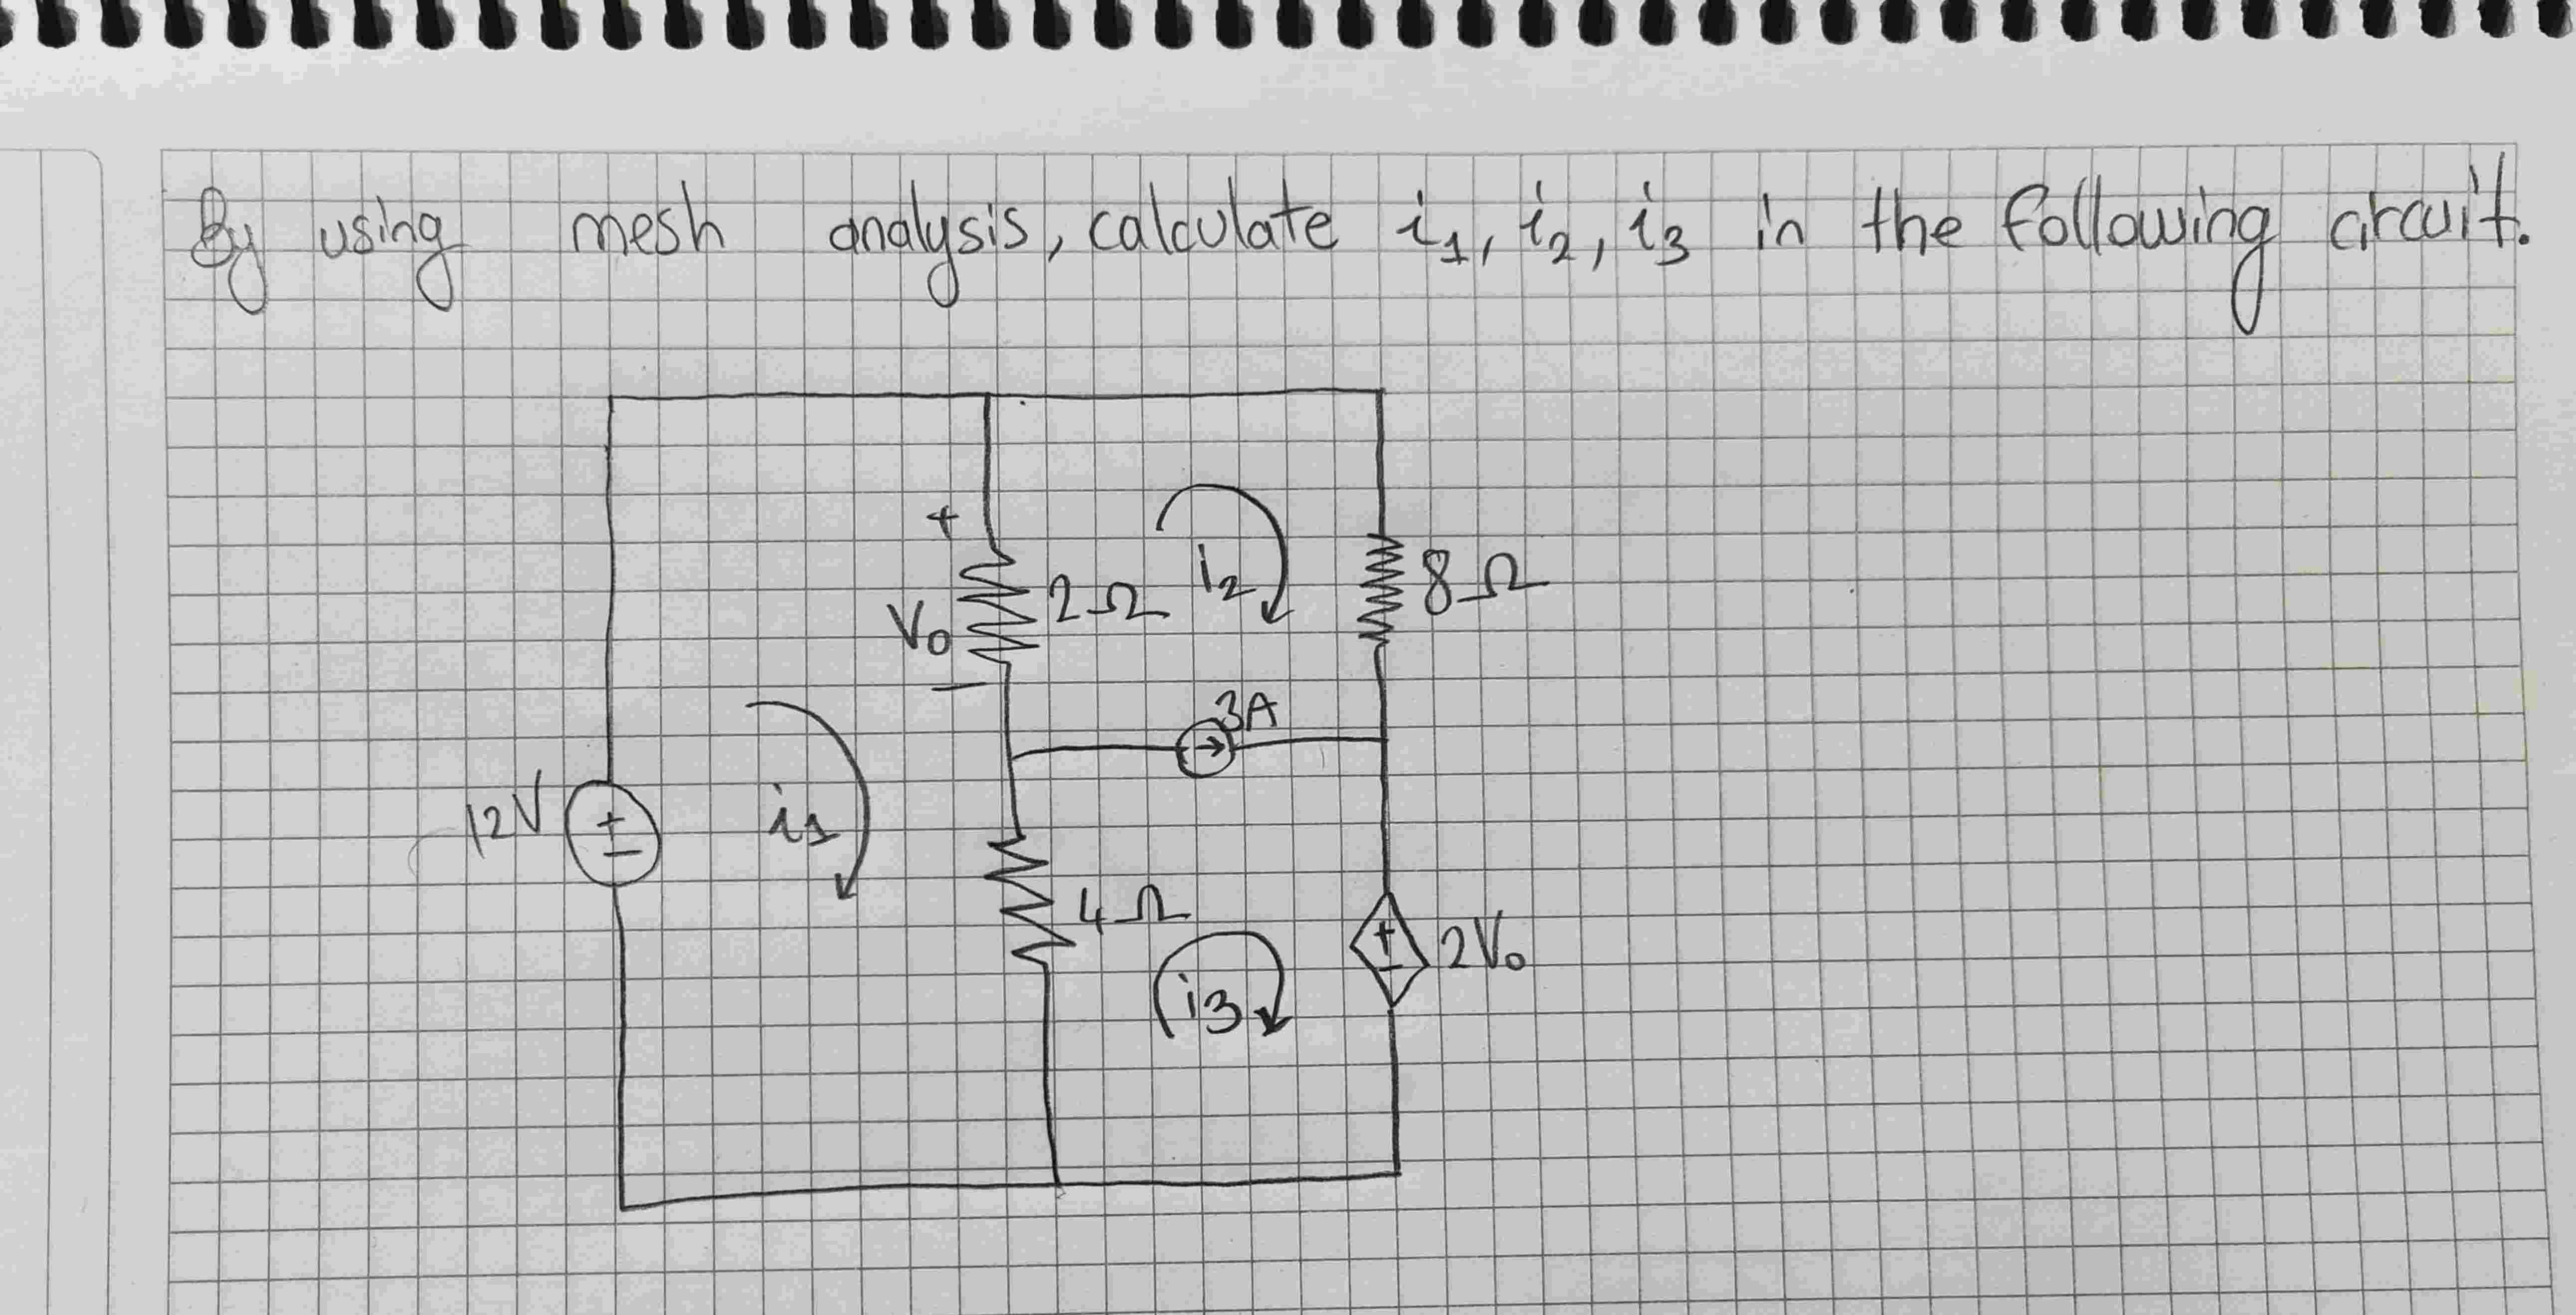 By using mesh analysis, calculate i₁, i₂, i₃ in the following circuit.
+
V₀
2Ω
i₂
8Ω
−
3A
12V
+
−
i₁
4Ω
i₃
+
−
2V₀